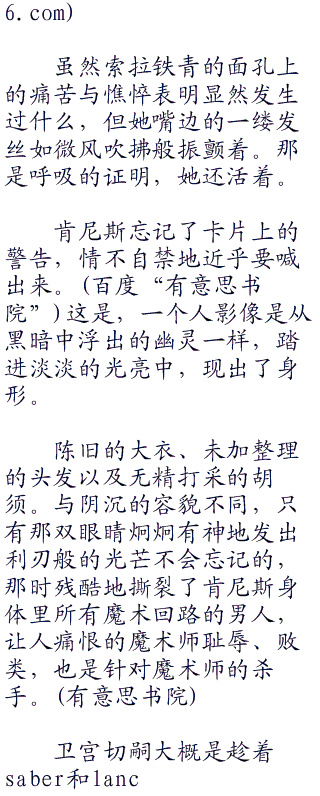 6.com)
虽然索拉铁青的面孔上
的痛苦与憔悴表明显然发生
过什么，但她嘴边的一缕发
丝如微风吹拂般振颤着。那
是呼吸的证明，她还活着。
肯尼斯忘记了卡片上的
警告，情不自禁地近乎要喊
出来。(百度“有意思书
院”)这是，一个人影像是从
黑暗中浮出的幽灵一样，踏
进淡淡的光亮中，现出了身
形。
陈旧的大衣、未加整理
的头发以及无精打采的胡
须。与阴沉的容貌不同，只
有那双眼睛炯炯有神地发出
利刃般的光芒不会忘记的，
那时残酷地撕裂了肯尼斯身
体里所有魔术回路的男人，
让人痛恨的魔术师耻辱、败
类，也是针对魔术师的杀
手。(有意思书院)
卫宫切嗣大概是趁着
saber和lanc